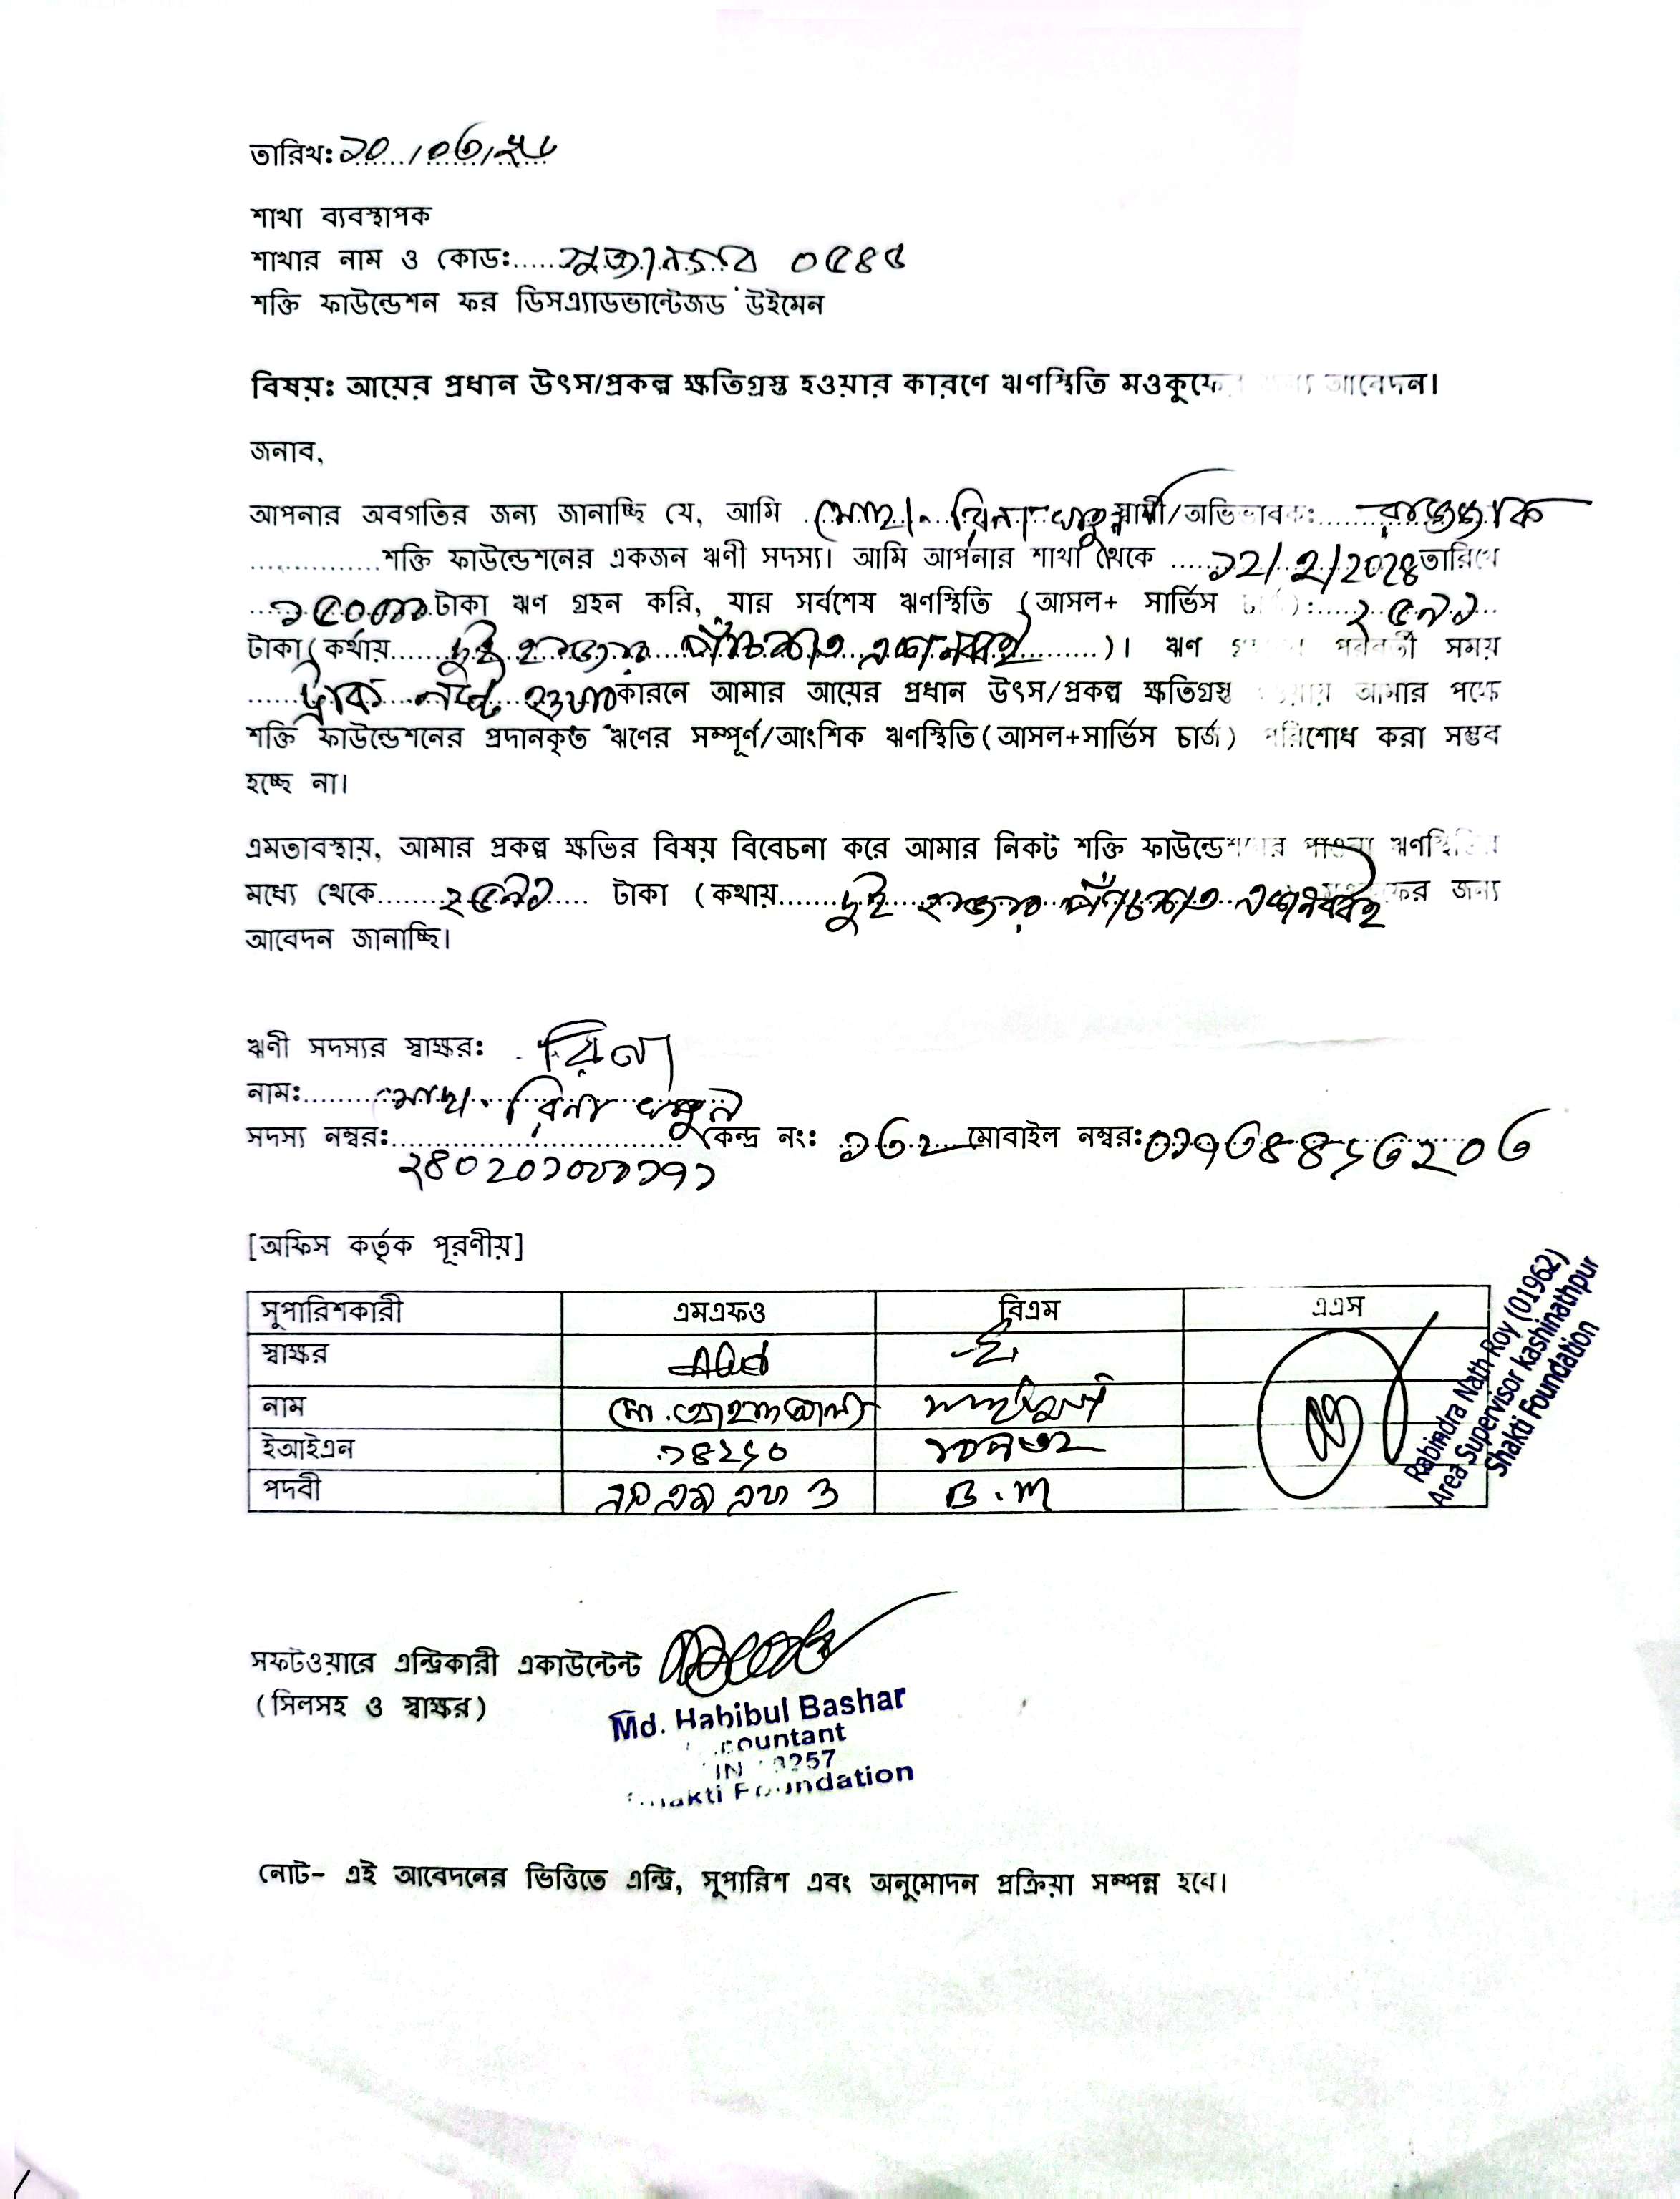 তারিখ: ১০/০৩/২৫
শাখা ব্যবস্থাপক
শাখার নাম ও কোড: সুজানগর ০৫৪৫
শক্তি ফাউন্ডেশন ফর ডিসএ্যাডভান্টেজড উইমেন
বিষয়: আয়ের প্রধান উৎস/প্রকল্প ক্ষতিগ্রস্ত হওয়ার কারণে ঋণস্থিতি মওকুফের জন্য আবেদন।
জনাব,
আপনার অবগতির জন্য জানাচ্ছি যে, আমি মোছা. রিনা খাতুন স্বামী/অভিভাবক: রাজ্জাক
শক্তি ফাউন্ডেশনের একজন ঋণী সদস্য। আমি আপনার শাখা থেকে ১২/২/2024 তারিখে
১৫০০০ টাকা ঋণ গ্রহন করি, যার সর্বশেষ ঋণস্থিতি (আসল+ সার্ভিস চার্জ): ২৫৯১
টাকা (কথায় দুই হাজার পাঁচশত একানব্বই)। ঋণ গ্রহণের পরবর্তী সময়
নষ্ট হওয়া কারনে আমার আয়ের প্রধান উৎস/প্রকল্প ক্ষতিগ্রস্ত হওয়ায় আমার পক্ষে
শক্তি ফাউন্ডেশনের প্রদানকৃত ঋণের সম্পূর্ণ/আংশিক ঋণস্থিতি (আসল+সার্ভিস চার্জ) পরিশোধ করা সম্ভব
হচ্ছে না।
এমতাবস্থায়, আমার প্রকল্প ক্ষতির বিষয় বিবেচনা করে আমার নিকট শক্তি ফাউন্ডেশনের পাওনা ঋণস্থিতির
মধ্যে থেকে ২৫৯১ টাকা (কথায় দুই হাজার পাঁচশত একানব্বই মওকুফের জন্য
আবেদন জানাচ্ছি।
ঋণী সদস্যর স্বাক্ষর: রিনা
নাম: মোছা. রিনা খাতুন
সদস্য নম্বর: কেন্দ্র নং: ১৩২ মোবাইল নম্বর:
[অফিস কর্তৃক পূরণীয়]
সুপারিশকারী এমএফও বিএম এএস
স্বাক্ষর
নাম
ইআইএন ১৪২৬০
পদবী এস এম এফ ও B.M
Rabindra Nath Roy (01962)
Area Supervisor kashinathpur
Shakti Foundation
সফটওয়ারে এন্ট্রিকারী একাউন্টেন্ট
(সিলসহ ও স্বাক্ষর)
Md. Habibul Bashar
Accountant
Shakti Foundation
নোট- এই আবেদনের ভিত্তিতে এন্ট্রি, সুপারিশ এবং অনুমোদন প্রক্রিয়া সম্পন্ন হবে।